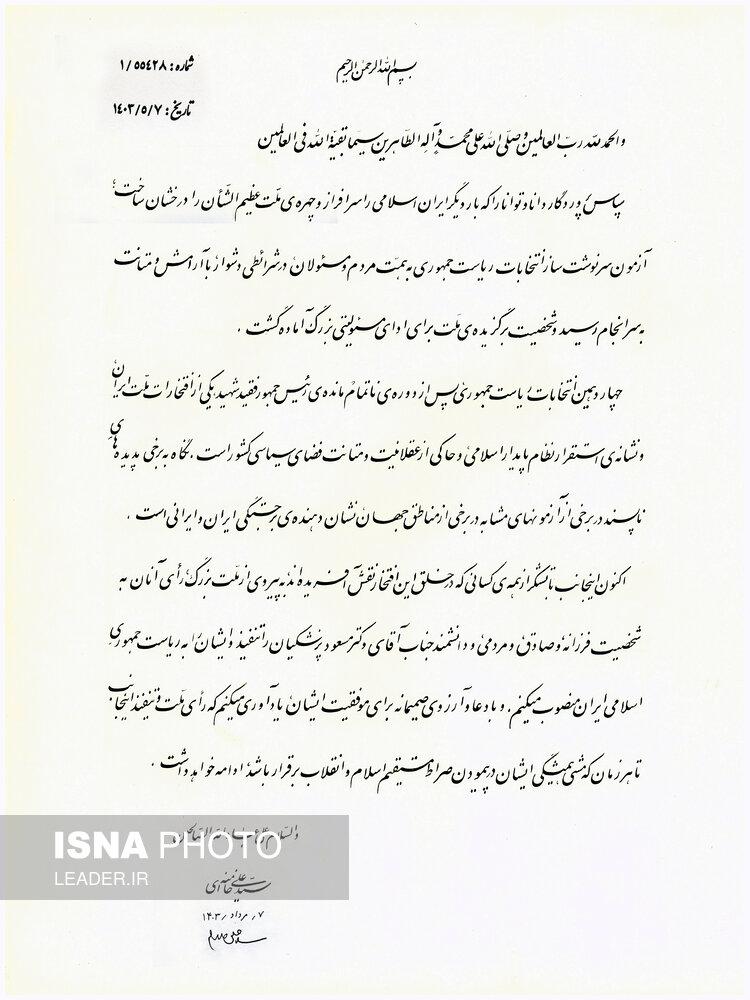 بسم الله الرحمن الرحیم
شماره: ۱/۵۵۴۲۸
تاریخ: ۱۴۰۳/۵/۷
والحمد لله رب العالمین و صلی الله علی محمد و آله الطاهرین سیما بقیة الله فی العالمین
سپاس پروردگار دانا و توانا را که بار دیگر ایران اسلامی را سرافراز و چهره‌ی ملت عظیم الشّأن را درخشان ساخت؛
آزمون سرنوشت ساز انتخابات ریاست جمهوری به همّت مردم و مسئولان در شرائطی دشوار با آرامش و متانت
به سرانجام رسید و شخصیت برگزیده‌ی ملت برای ادای مسئولیتی بزرگ آماده گشت.
چهاردهمین انتخابات ریاست جمهوری پس از دوره‌ی ناتمام مانده‌ی رئیس جمهور فقید شهید یکی از افتخارات ملت ایران
و نشانه‌ی استقرار نظام پایدار اسلامی و حاکی از عقلانیت و متانت فضای سیاسی کشور است. نگاه به برخی پدیده‌های
ناپسند در برخی از آزمونهای مشابه در برخی از مناطق جهان نشان دهنده‌ی برجستگی ایران و ایرانی است.
اکنون اینجانب با تشکر از همه‌ی کسانی که در خلق این افتخار نقش آفریده‌اند به پیروی از ملت بزرگ رأی آنان به
شخصیت فرزانه و صادق و مردمی و دانشمند جناب آقای دکتر مسعود پزشکیان را تنفیذ و ایشان را به ریاست جمهوری
اسلامی ایران منصوب میکنم. و با دعا و آرزوی صمیمانه برای موفقیت ایشان یادآوری میکنم که رأی ملت و تنفیذ اینجانب
تا هر زمان که مشی همیشگی ایشان در پیمودن صراط مستقیم اسلام و انقلاب برقرار باشد ادامه خواهد داشت.
والسّلام علی عبادالله الصّالحین
سیّدعلی خامنه‌ای
۷/مرداد/۱۴۰۳
ISNA PHOTO
LEADER.IR